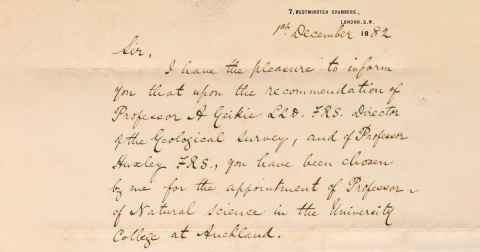 7, WESTMINSTER CHAMBERS,
LONDON, S.W.
1st December 1882
Sir,
I have the pleasure to inform
you that upon the recommendation of
Professor A Geikie LLD. F.R.S. Director
of the Geological Survey, and of Professor
Huxley F.R.S., you have been chosen
by me for the appointment of Professor
of Natural Science in the University
College at Auckland.